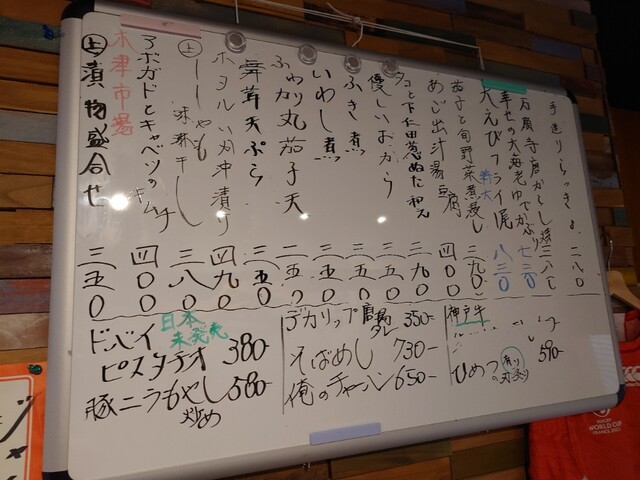 手造りらっきょ 二八〇
幸せの大海老ゆでかぶり 七三〇
大えびフライ 尾 特大 八三〇
茄子と旬野菜煮浸し 三九〇
あご出汁湯豆腐 四〇〇
タコと下仁田葱ぬた和え 二九〇
優しいおから 二五〇
ふき煮 三五〇
いわし煮 三五〇
ふわり丸茄子天 二五〇
舞茸天ぷら 三五〇
ホタルいか沖漬り 四九〇
上 ししゃも 味醂干し 三八〇
アボガドとキャベツのキムチ 四〇〇
木津市場
上 漬物盛合せ 三五〇
ドバイ
日本
未発売
ピスタチオ 380-
豚ニラもやし 580-
炒め
デカリップ 350-
タレ
そばめし 730-
俺のチャーハン 650-
神戸牛
ひめつ 590-
RUGBY
WORLD CUP
FRANCE 2023